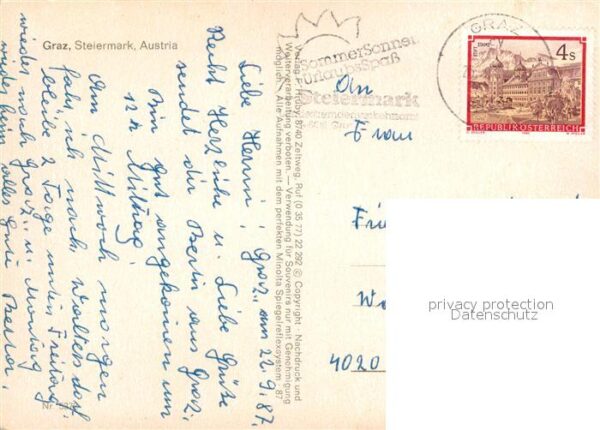 Graz, Steiermark, Austria
Graz, am 22.9.87.
Liebe Hermi!
Recht Herzliche u. Liebe Grüße
sendet dir Berta aus Graz.
Bin gut angekommen um
12 h Mittag!
Am Mittwoch morgen
fahr ich nach Waltersdorf
bleibe 2 Tage unten Freitag
wieder nach Graz u. Montag
wieder heim alles Gute Berta.
Verlag F. Hruby, 8740 Zeltweg, Ruf (0 35 77) 22 292 © Copyright - Nachdruck und
Weiterverarbeitung verboten. — Verwendung für Souvenirs nur mit Genehmigung
möglich — Alle Aufnahmen mit dem perfekten Minolta Spiegelreflexsystem
87
Nr.
SommerSonne
UrlaubsSpaß
Steiermark
GRAZ
4 S
REPUBLIK ÖSTERREICH
An
Frau
4020
privacy protection
Datenschutz